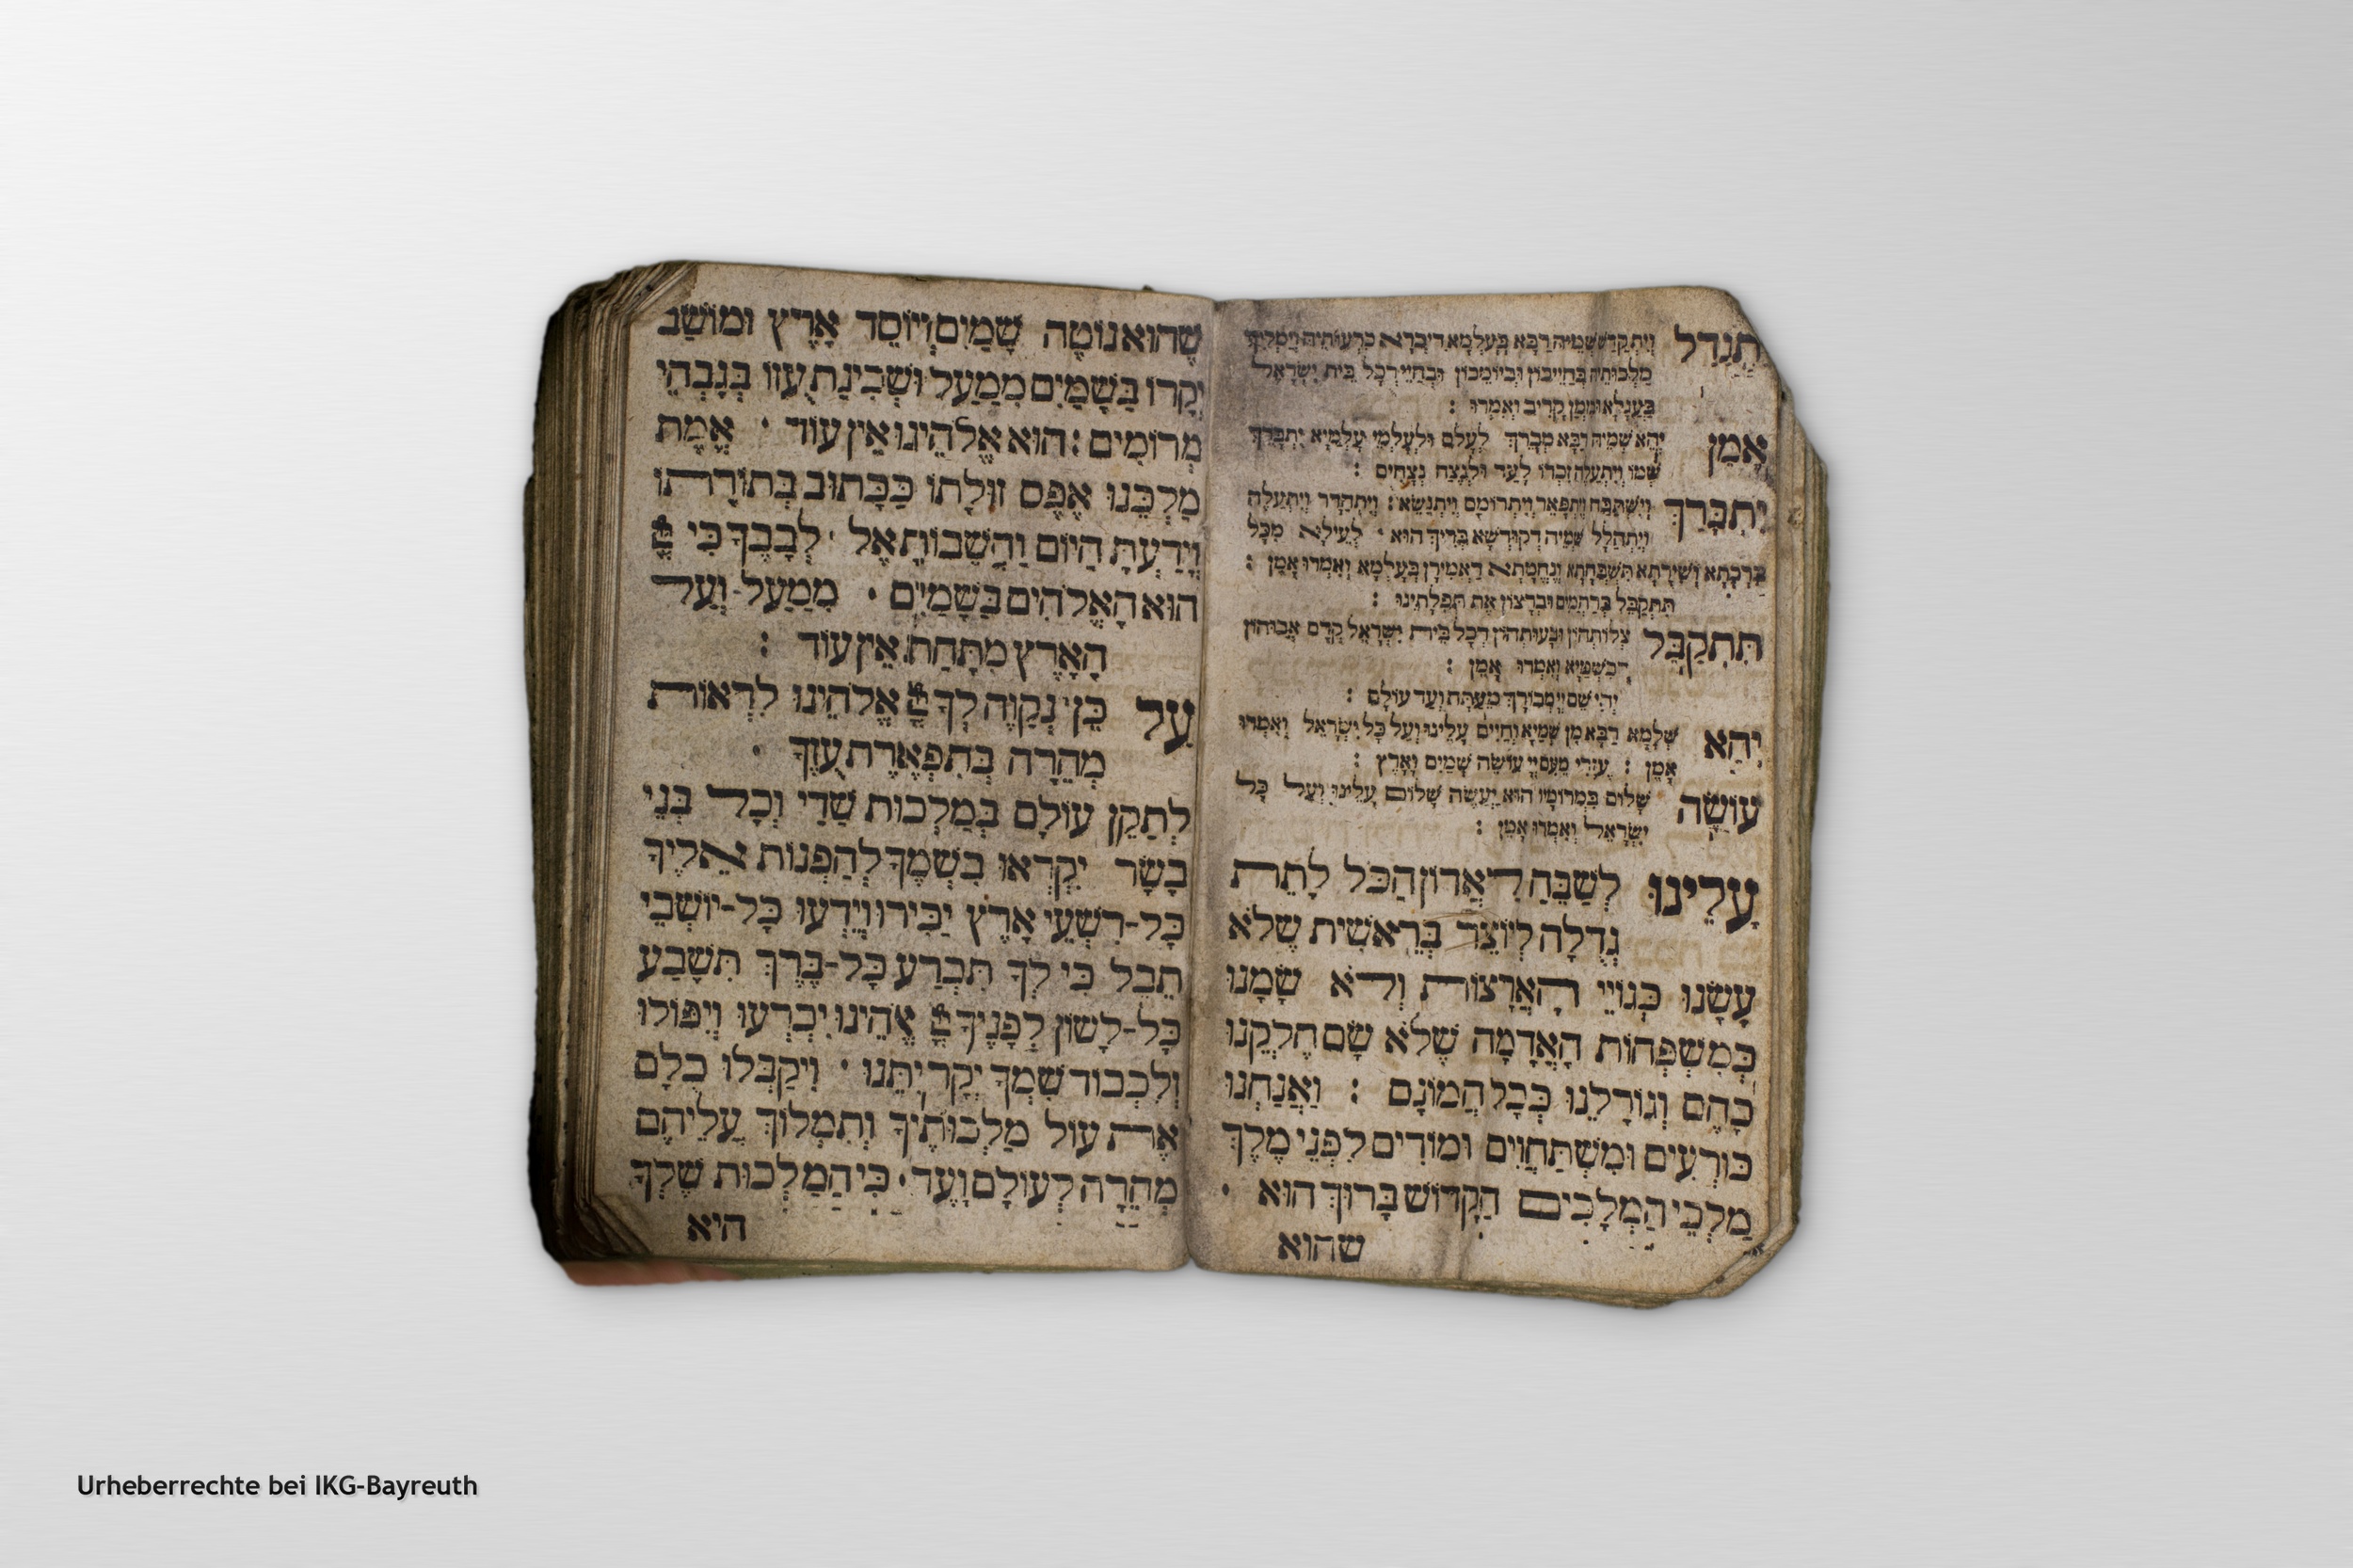 יתגדל ויתקדש שמיה רבא בעלמא די ברא כרעותיה וימליך
מלכותיה בחייכון וביומכון ובחיי דכל בית ישראל
בעגלא ובזמן קריב ואמרו :
אָמֵן יהא שמיה רבא מברך לעלם ולעלמי עלמיא יתברך
שמו ויתעלה זכרו לעד ולנצח נצחים :
יִתְבָּרַךְ וישתבח ויתפאר ויתרומם ויתנשא : ויתהדר ויתעלה
ויתהלל שמיה דקודשא בריך הוא · לעילא מכל
ברכתא ושירתא תשבחתא ונחמתא דאמירן בעלמא ואמרו אמן :
תתקבל ברחמים וברצון את תפלתינו :
תִּתְקַבֵּל צלותהון ובעותהון דכל בית ישראל קדם אבוהון
דבשמיא ואמרו אמן :
יהי שם יי מבורך מעתה ועד עולם :
יְהֵא שלמא רבא מן שמיא וחיים עלינו ועל כל ישראל ואמרו
אמן : עזרי מעם יי עושה שמים וארץ :
עוֹשֶׂה שלום במרומיו הוא יעשה שלום עלינו ועל כל
ישראל ואמרו אמן :
עָלֵינוּ לְשַׁבֵּחַ לַאֲדוֹן הַכֹּל לָתֵת
גְדֻלָּה לְיוֹצֵר בְּרֵאשִׁית שֶׁלֹא
עָשָׂנוּ כְּגוֹיֵי הָאֲרָצוֹת וְלֹא שָׂמָנוּ
כְּמִשְׁפְּחוֹת הָאֲדָמָה שֶׁלֹא שָׂם חֶלְקֵנוּ
כָהֶם וְגוֹרָלֵנוּ כְּכָל הֲמוֹנָם : וַאֲנַחְנוּ
כּוֹרְעִים וּמִשְׁתַּחֲוִים וּמוֹדִים לִפְנֵי מֶלֶךְ
מַלְכֵי הַמְלָכִים הַקָדוֹשׁ בָּרוּךְ הוּא ·
שהוא
שֶׁהוּא נוֹטֶה שָׁמַיִם וְיוֹסֵד אָרֶץ וּמוֹשַׁב
יְקָרוֹ בַּשָׁמַיִם מִמַעַל וּשְׁכִינַת עֻזוֹ בְּגָבְהֵי
מְרוֹמִים : הוּא אֱלֹהֵינוּ אֵין עוֹד · אֱמֶת
מַלְכֵּנוּ אֶפֶס זוּלָתוֹ כַּכָּתוּב בְּתוֹרָתוֹ
וְיָדַעְתָּ הַיוֹם וַהֲשֵׁבוֹתָ אֶל · לְבָבֶךָ כִּי
הוּא הָאֱלֹהִים בַּשָׁמַיִם · מִמַעַל וְעַל
הָאָרֶץ מִתָּחַת אֵין עוֹד :
עַל כֵּן נְקַוֶה לְךָ אֱלֹהֵינוּ לִרְאוֹת
מְהֵרָה בְּתִפְאֶרֶת עֻזֶךָ ·
לְתַקֵן עוֹלָם בְּמַלְכוּת שַׁדַי וְכָל בְּנֵי
בָשָׂר יִקְרְאוּ בִשְׁמֶךָ לְהַפְנוֹת אֵלֶיךָ
כָּל-רִשְׁעֵי אָרֶץ יַכִּירוּ וְיֵדְעוּ כָּל-יוֹשְׁבֵי
תֵבֵל כִּי לְךָ תִכְרַע כָּל-בֶּרֶךְ תִּשָׁבַע
כָּל-לָשׁוֹן לְפָנֶיךָ אֱהֵינוּ יִכְרְעוּ וְיִפּוֹלוּ
וְלִכְבוֹד שִׁמְךָ יְקָר יִתֵּנוּ · וִיקַבְּלוּ כֻלָם
אֶת עוֹל מַלְכוּתֶיךָ וְתִמְלוֹךְ עֲלֵיהֶם
מְהֵרָה לְעוֹלָם וָעֶד · כִּי הַמַלְכוּת שֶׁלְךָ
היא
Urheberrechte bei IKG-Bayreuth